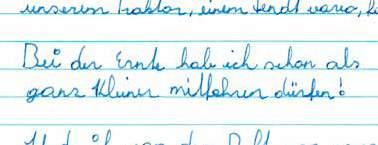 unserem Traktor, einem Fendt Vario,
Bei der Ernte hab ich schon als
ganz Kleiner mitfahren dürfen!